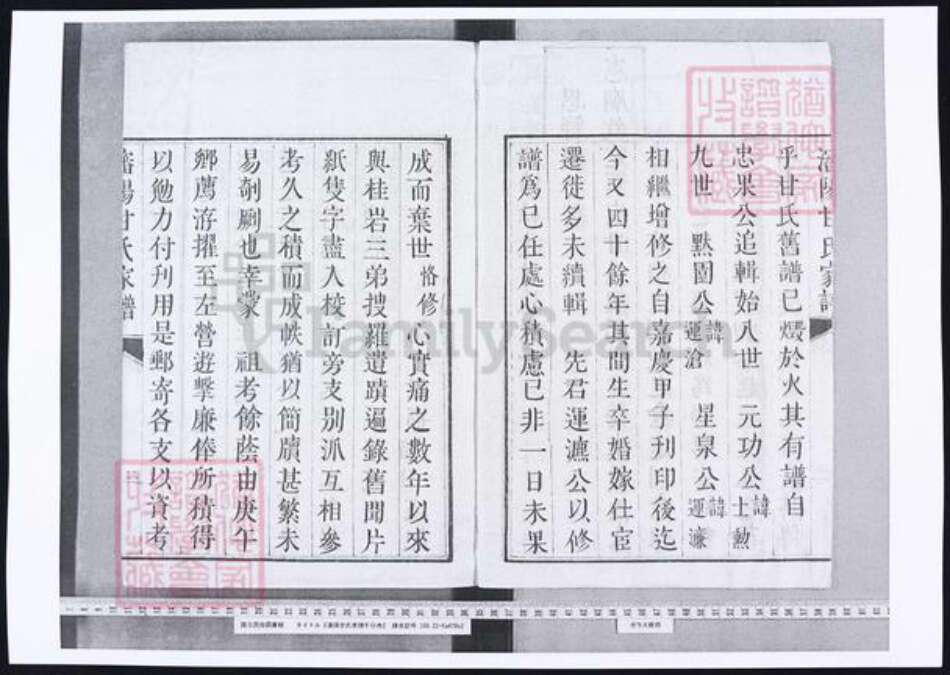 瀋陽甘氏家譜
乎甘氏舊譜已燬於火其有譜自
忠果公追輯始八世 元功公諱士勲
九世 黙園公諱運滄 星泉公諱運濂
相繼增修之自嘉慶甲子刊印後迄
今又四十餘年其間生卒婚嫁仕宦
遷徙多未續輯 先君運漉公以修
譜爲已任處心積慮已非一日未果
成而棄世恪修心實痛之數年以來
與桂岩三弟搜羅遺蹟遍錄舊聞片
紙隻字盡入校訂旁支別派互相參
考久之積而成帙猶以簡牘甚繁未
易剞劂也幸蒙 祖考餘蔭由庚午
鄉薦游擢至左營遊擊廉俸所積得
以勉力付刋用是郵寄各支以資考
瀋陽甘氏家譜
FamilySearch